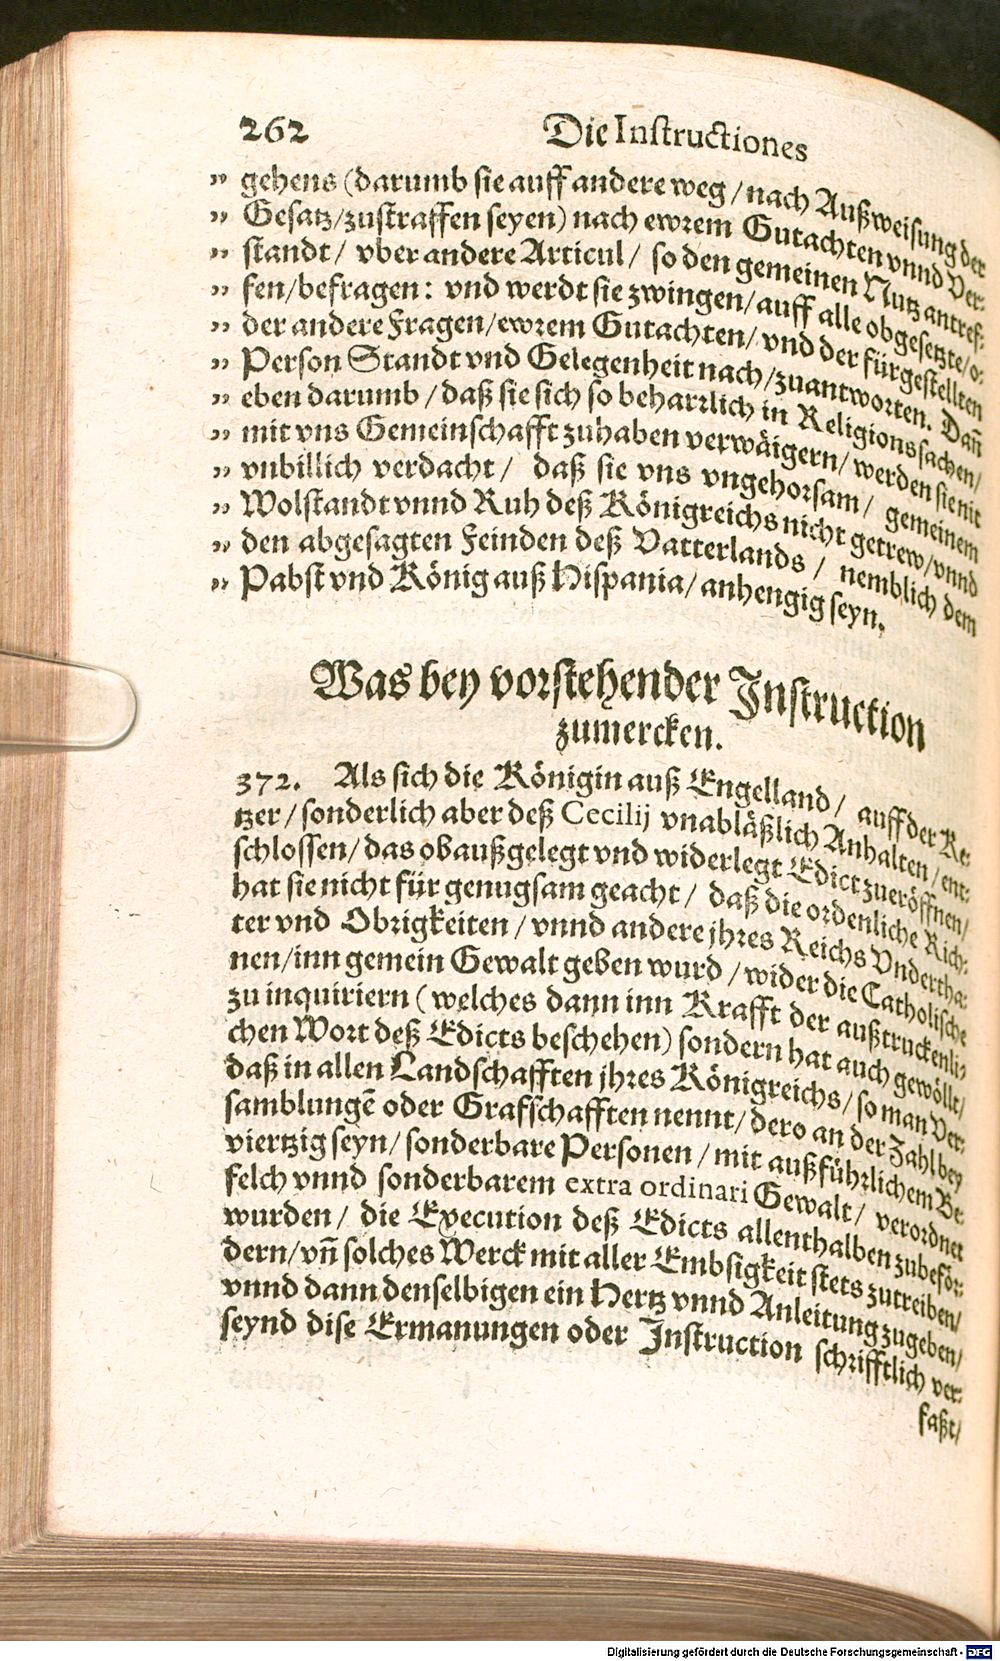 262 Die Instructiones
„ gehens (darumb sie auff andere weg / nach Außweisung der
„ Gesatz/zustraffen seyen) nach ewrem Gutachten vnnd Ver⸗
„ standt / vber andere Articul / so den gemeinen Nutz antref⸗
„ fen/befragen: vnd werdt sie zwingen/auff alle obgesetzte/o⸗
„ der andere Fragen/ewrem Gutachten/ vnd der fürgestellten
„ Person Standt vnd Gelegenheit nach/zuantworten. Dañ
„ eben darumb / daß sie sich so beharrlich in Religionssachen/
„ mit vns Gemeinschafft zuhaben verwäigern/ werden sie nit
„ vnbillich verdacht / daß sie vns vngehorsam / gemeinem
„ Wolstandt vnnd Ruh deß Königreichs nicht getrew/vnnd
„ den abgesagten Feinden deß Vatterlands / nemblich dem
„ Pabst vnd König auß Hispania/anhengig seyn.
Was bey vorstehender Instruction
zumercken.
372. Als sich die Königin auß Engelland / auff der Ke⸗
tzer / sonderlich aber deß Cecilij vnabläßlich Anhalten / ent⸗
schlossen/das obaußgelegt vnd widerlegt Edict zueröffnen/
hat sie nicht für genugsam geacht / daß die ordenliche Rich⸗
ter vnd Obrigkeiten / vnnd andere jhres Reichs Vndertha⸗
nen/inn gemein Gewalt geben wurd / wider die Catholische
zu inquiriern (welches dann inn Krafft der außtruckenli⸗
chen Wort deß Edicts beschehen) sondern hat auch gewöllt/
daß in allen Landschafften jhres Königreichs / so man Ver⸗
samblungē oder Grafschafften nennt/ dero an der Zahl bey
viertzig seyn/ sonderbare Personen / mit außführlichem Be⸗
felch vnnd sonderbarem extra ordinari Gewalt / verordnet
wurden / die Execution deß Edicts allenthalben zubeför⸗
dern/vñ solches Werck mit aller Embsigkeit stets zutreiben/
vnnd dann denselbigen ein Hertz vnnd Anleitung zugeben/
seynd dise Ermanungen oder Instruction schrifftlich ver⸗
faßt/
Digitalisierung gefördert durch die Deutsche Forschungsgemeinschaft - DFG